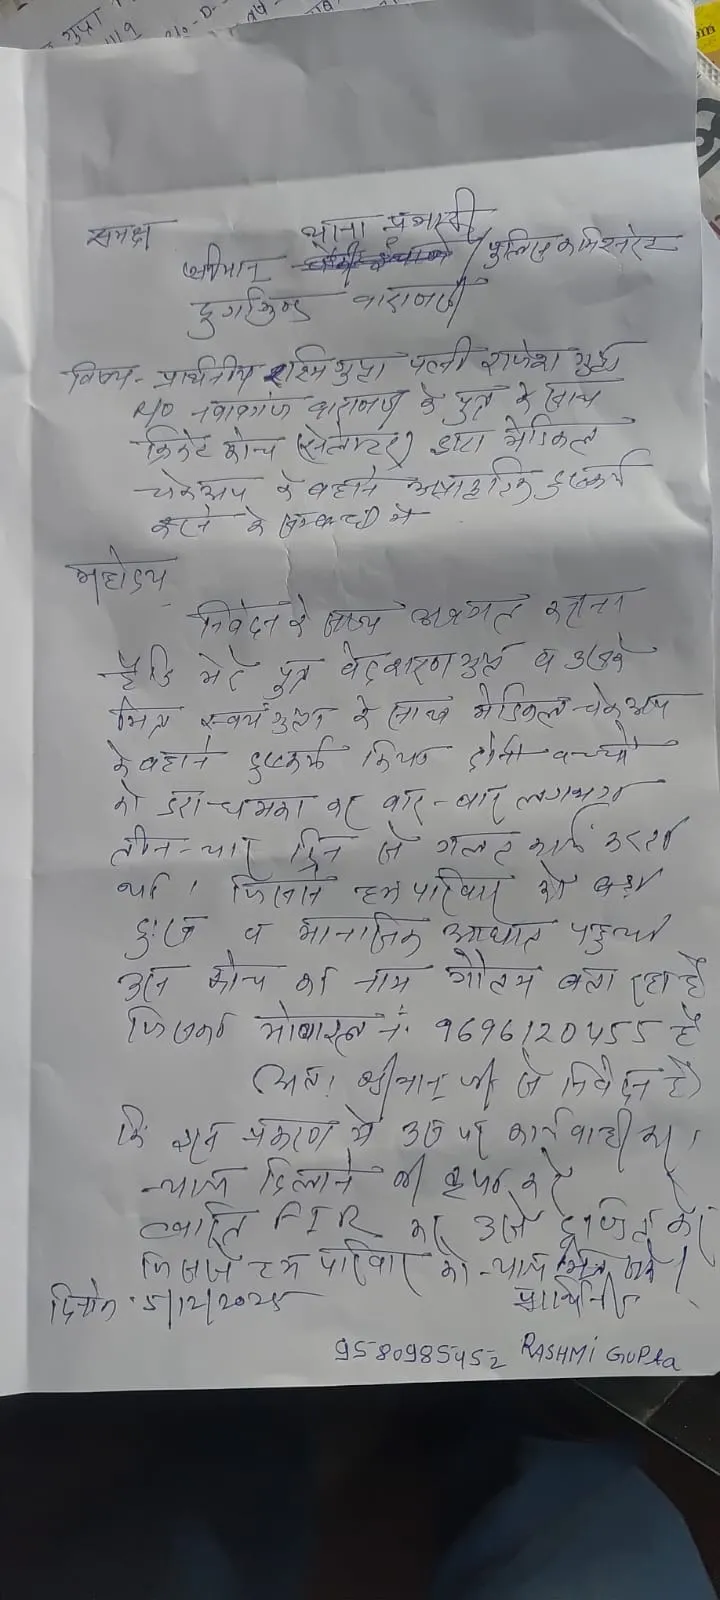 समक्ष
थाना प्रभारी
श्रीमान / पुलिस कमिश्नरेट
दुर्गाकुण्ड वाराणसी
विषय- प्रार्थनीय रश्मि गुप्ता पत्नी राजेश गुप्ता
R/O नवाबगंज वाराणसी के पुत्र के साथ
क्रिकेट कोच (सेलेक्टर) द्वारा मेडिकल
चेकअप के बहाने अप्राकृतिक दुष्कर्म
करने के सम्बन्धी में
महोदय
निवेदन के साथ अवगत कराना
है कि मेरे पुत्र गुप्ता व उसके
मित्र गुप्ता के साथ मेडिकल चेकअप
के बहाने दुष्कर्म किया दोनों बच्चों
को डरा-धमका कर बार-बार लगभग
तीन-चार दिन से गलत कार्य करता
था। जिससे हम परिवार को बड़ा
दुःख व मानसिक आघात पहुचा
उस कोच का नाम गौतम बता रहा है
जिसका मोबाइल नं. 9696120455 है
अतः श्रीमान् जी से निवेदन है
कि इस प्रकरण में उस पर कार्यवाही कर।
न्याय दिलाने की कृपा करे
त्वरित FIR कर उसे दण्डित करे
जिससे हम परिवार को न्याय मिल सके।
दिनांक 5/12/2025 प्रार्थिनी
9580985452 RASHMI GUPTA